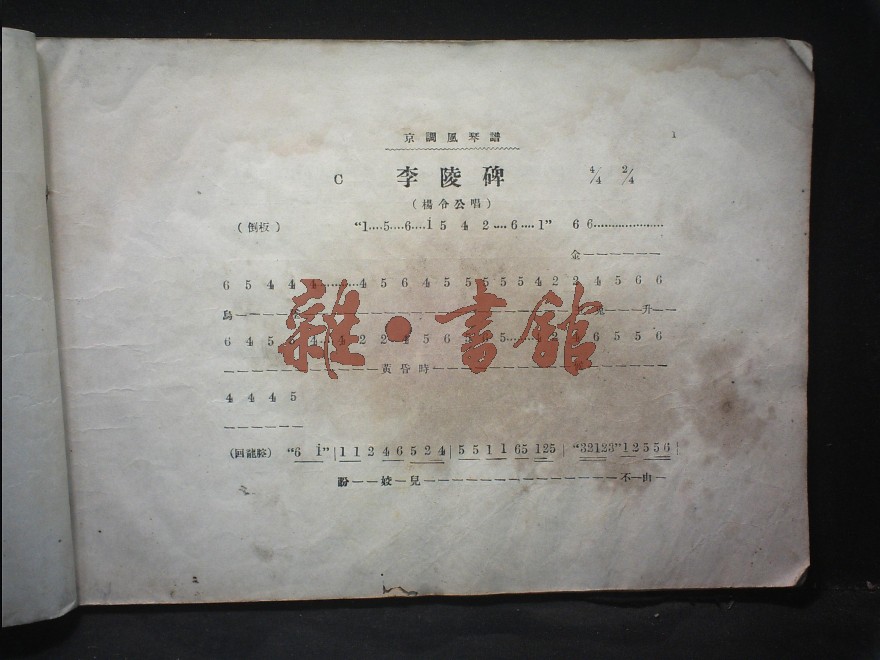 京調風琴譜 1
C 李陵碑 4/4 2/4
（楊令公唱）
（倒板） “1....5....6....i 5 4 2....6....1” 6 6....................
金——————
6 5 4 4 4..........4 5 6 4 5 5 5 5 5 4 2 2 4 5 6 6
烏—— 升——
6 4 5 4 2 2 4 5 5.....4 2 6 5 5 6
——————黃昏時——————
4 4 4 5
——————
（回龍腔） “6 i” | 1 1 2 4 6 5 2 4 | 5 5 1 1 65 125 | “32123” 1 2 5 5 6 |
盼——姣—兒——————————————不—由—
雜·書館